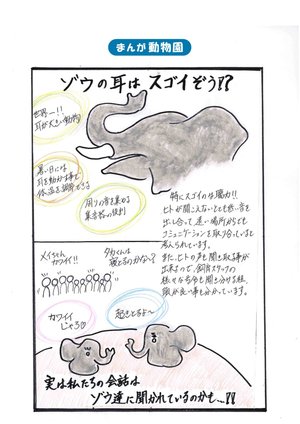 まんが動物園
ゾウの耳は スゴイぞう!!?
世界一!!
耳が大きい動物
暑い日には
耳を動かす事で
体温を調節できる
周りの音を集める
集音器の役割
特にスゴイのは聴力!!
ヒトが聞こえないとても低い音を
出し合って、遠い場所からでも
コミュニケーションを取り合っていると
考えられています。
また、ヒトの声も聞き取る事が
出来るので、飼育スタッフの
様々な合図を聞き分ける程、
頭が良い事も分かっています。
メイちゃん
カワイイ!!
タカくんは
寝とるのかな〜?
カワイイ
じゃろ
起きとるよ〜
実は私たちの会話は
ゾウ達に聞かれているのかも…!!?